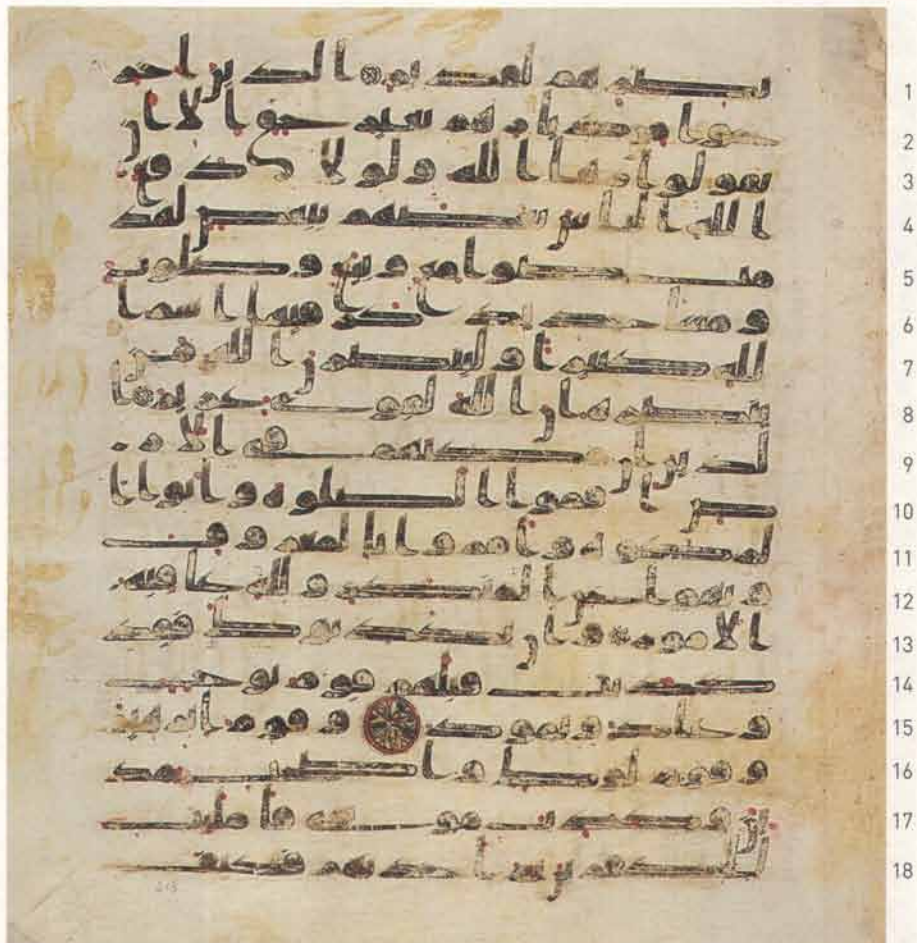 1 نصرهم لقدير الذين اخر
2 جوا من ديرهم بغير حق الا ان
3 يقولوا ربنا الله ولولا دفع
4 الله الناس بعضهم ببعض لهد
5 مت صومع وبيع وصلوت
6 ومسجد يذكر فيها اسم ا
7 لله كثيرا ولينصرن الله من
8 ينصره ان الله لقوى عزيز ا
9 لذين ان مكنهم فى الار
10 ض اقاموا الصلوه واتوا ا
11 لزكوه وامروا بالمعروف
12 ونهوا عن المنكر ولله عقبه
13 الامور وان يكذبوك فقد
14 كذبت قبلهم قوم نوح
15 وعاد وثمود وقوم ابرهيم
16 وقوم لوط واصحب مد
17 ين وكذب موسى فامليت
18 للكفرين ثم اخذتهم فكيف